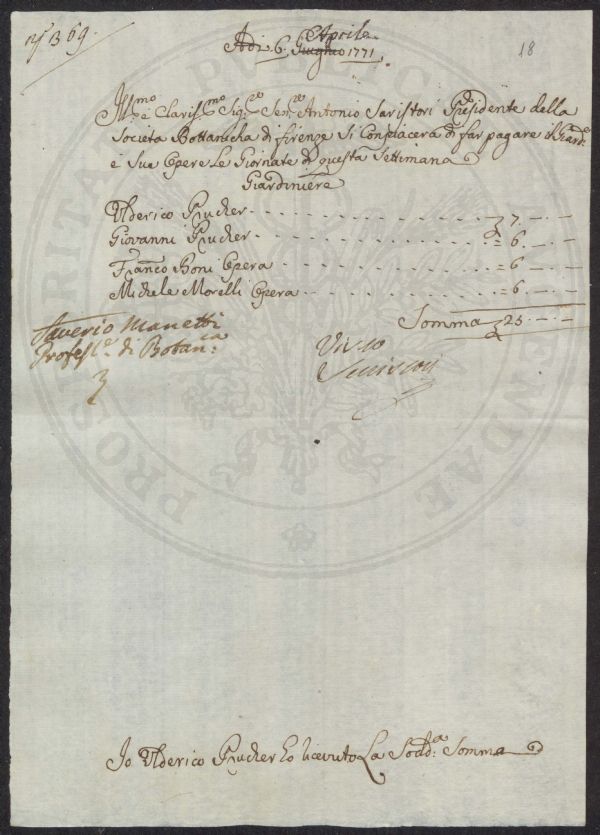 N.º 369.
18
Aprile
Adi 6. Giugno 1771
Ill.mo e Clariss.mo Sig.re Sen.re Antonio Saristori Presidente della
Societa Bottanicha di firenze Si Conpiacera di far pagare al Giard.e
e Sue Opere Le Giornate di questa Settimana
Giardiniere
Ulderico Prucher 7.—.—
Giovanni Prucher = 6.—.—
Franco Boni Opera = 6.—.—
Michele Morelli Opera = 6.—.—
Somma 25.—.—
Saverio Manetti
Profess.e di Botan.ca
Visto
Io Ulderico Prucher Ho ricevuto La Sodd.a Somma
PROSPERITATI PUBLICAE AUGENDAE